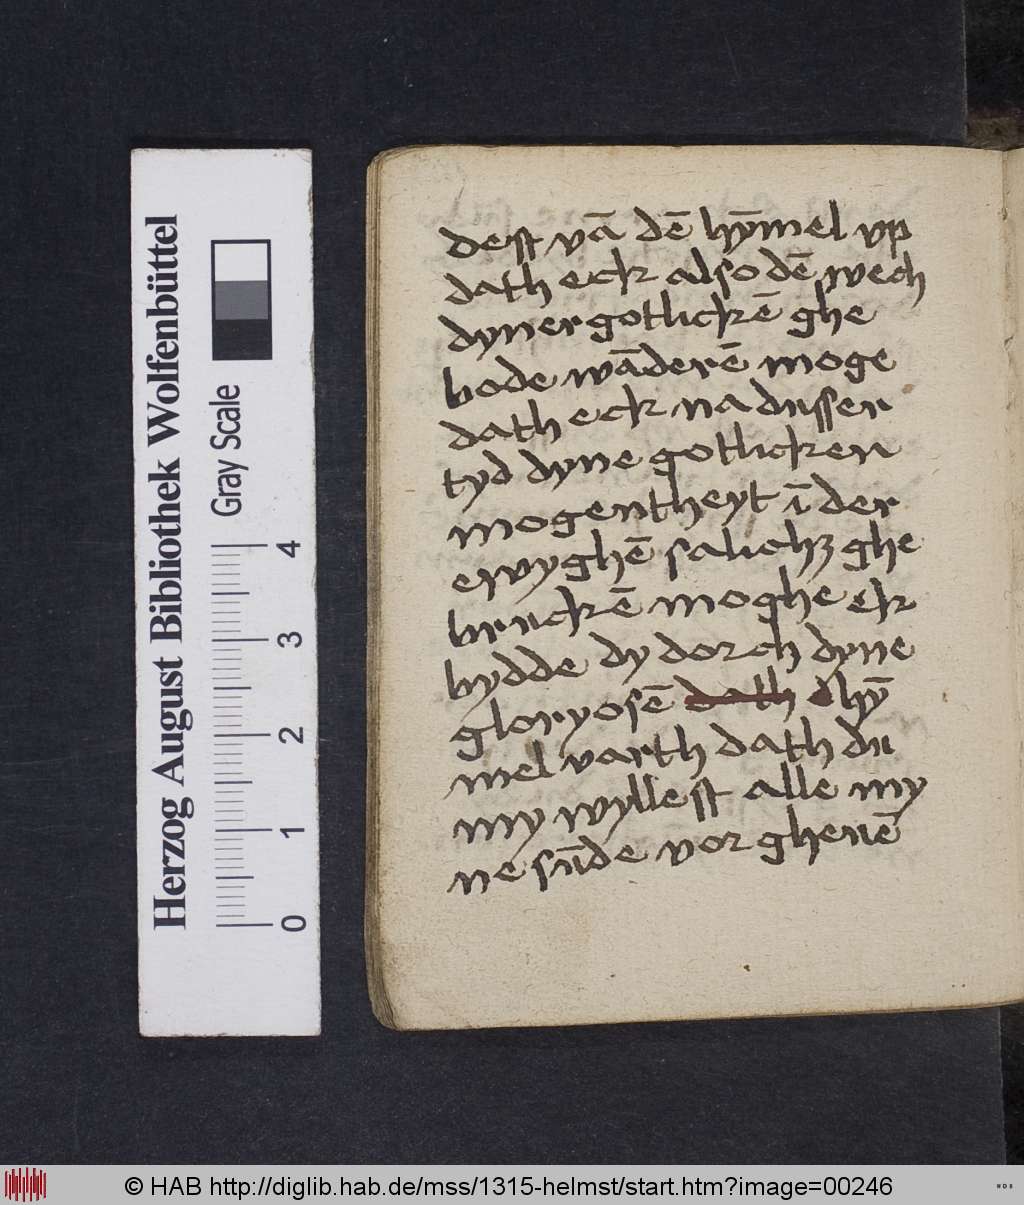 dest vā dē hȳmel vp
dath eck also dē wech
dyner gotlickē ghe
bode wāderē moge
dath eck na dusser
tyd dyne gotlicken
mogentheyt ī der
ewyghē salichꝫ ghe
bruckē moghe ek
bydde dy dorch dyne
gloryosē dath d hȳ
mel varth dath du
my wyllest alle my
ne sūde vor gheuē
Herzog August Bibliothek Wolfenbüttel
Gray Scale
0 1 2 3 4
© HAB http://diglib.hab.de/mss/1315-helmst/start.htm?image=00246